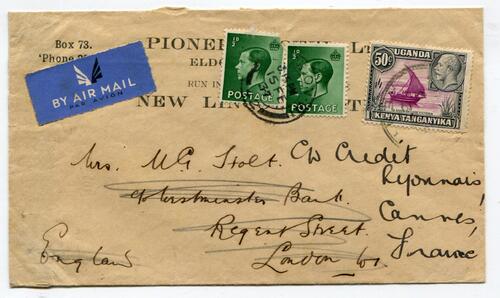 Box 73.
'Phone
PIONEER
ELDO
RUN IN
NEW LIN
BY AIR MAIL
PAR AVION
½D
POSTAGE
½D
POSTAGE
50c
UGANDA
KENYA TANGANYIKA
Mrs. M.G. Stolt. C/o Credit
Lyonnais
c/o Westminster Bank.
Cannes,
Regent Street.
France
England
London W1.